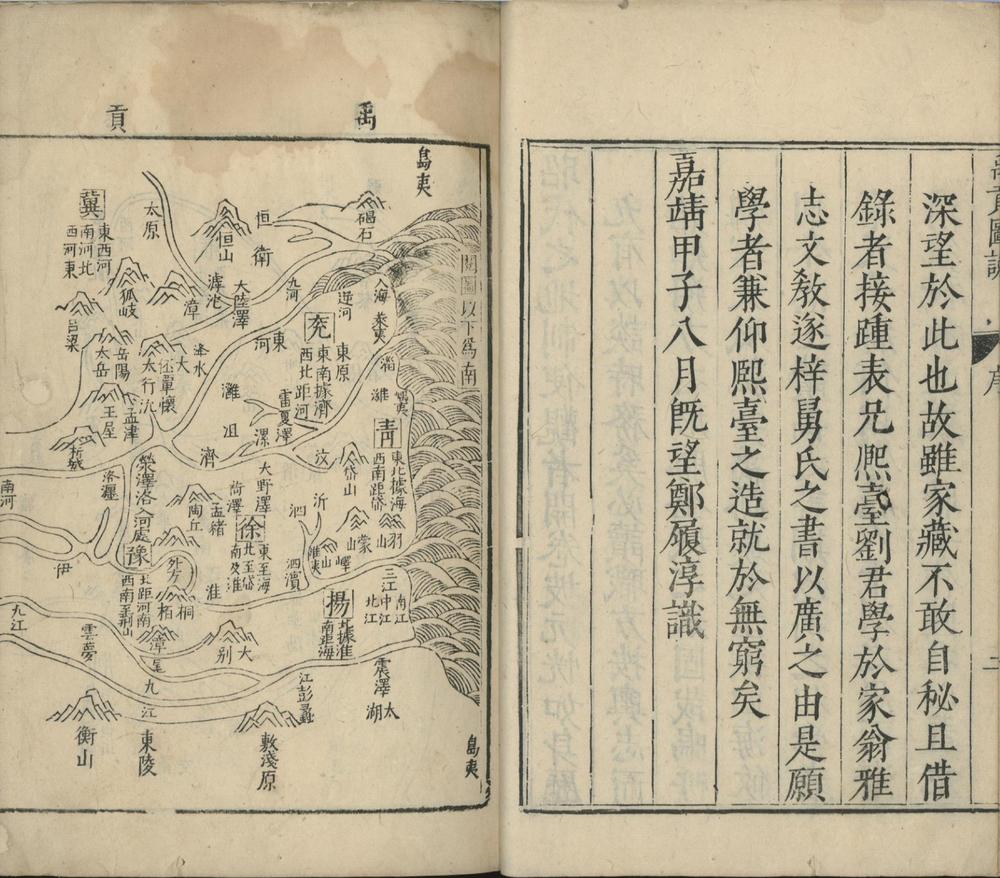 禹貢圖說
序
二
深望於此也故雖家藏不敢自秘且借
錄者接踵表兄熙臺劉君學於家翁雅
志文敎遂梓舅氏之書以廣之由是願
學者兼仰熙臺之造就於無窮矣
嘉靖甲子八月旣望鄭履淳識
禹
貢
島夷
以下爲南
碣石
恒
恒山
衛
太原
冀
東西河
南河北
西河東
入海
萊夷
逆河
九河
大陸澤
滹沱
漳
狐岐
呂梁
兗
東南據濟
西北距河
東原
東河
岳陽
太岳
太行
覃懷
大伾
洚水
沇
淄
濰
嵎夷
灉
雷夏澤
沮
漯
濟
王屋
孟津
析城
青
東北據海
西南距岱
岱山
汶
大野澤
菏澤
孟豬
陶丘
滎澤
洛入河處
洛
瀍
南河
沂
泗
蒙山
羽山
嶧山
淮夷
泗濱
徐
東至海
北至岱
南及淮
豫
北距河南
西南至荊山
外方
桐柏
淮
伊
三江
南江
中江
北江
揚
北據淮
南距海
震澤
太湖
大別
漳
雲夢
九江
九江
東陵
衡山
彭蠡
江
敷淺原
島夷